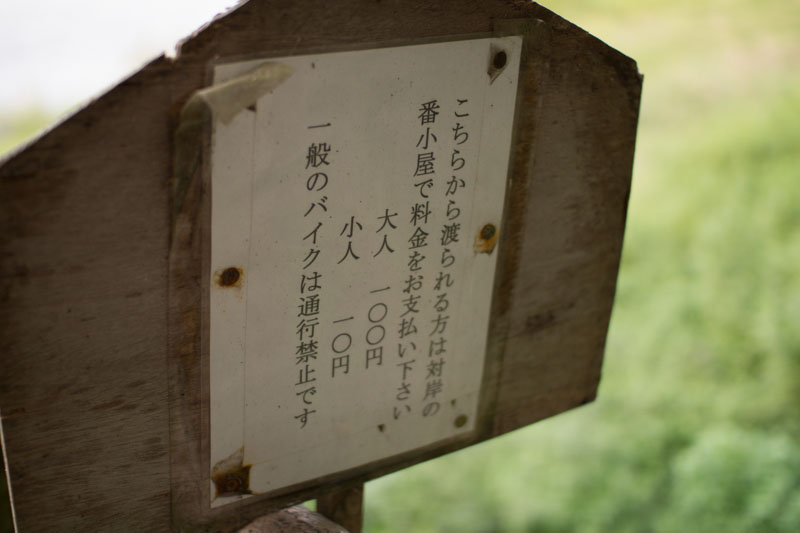 こちらから渡られる方は対岸の
番小屋で料金をお支払い下さい
大人 一〇〇円
小人 一〇円
一般のバイクは通行禁止です